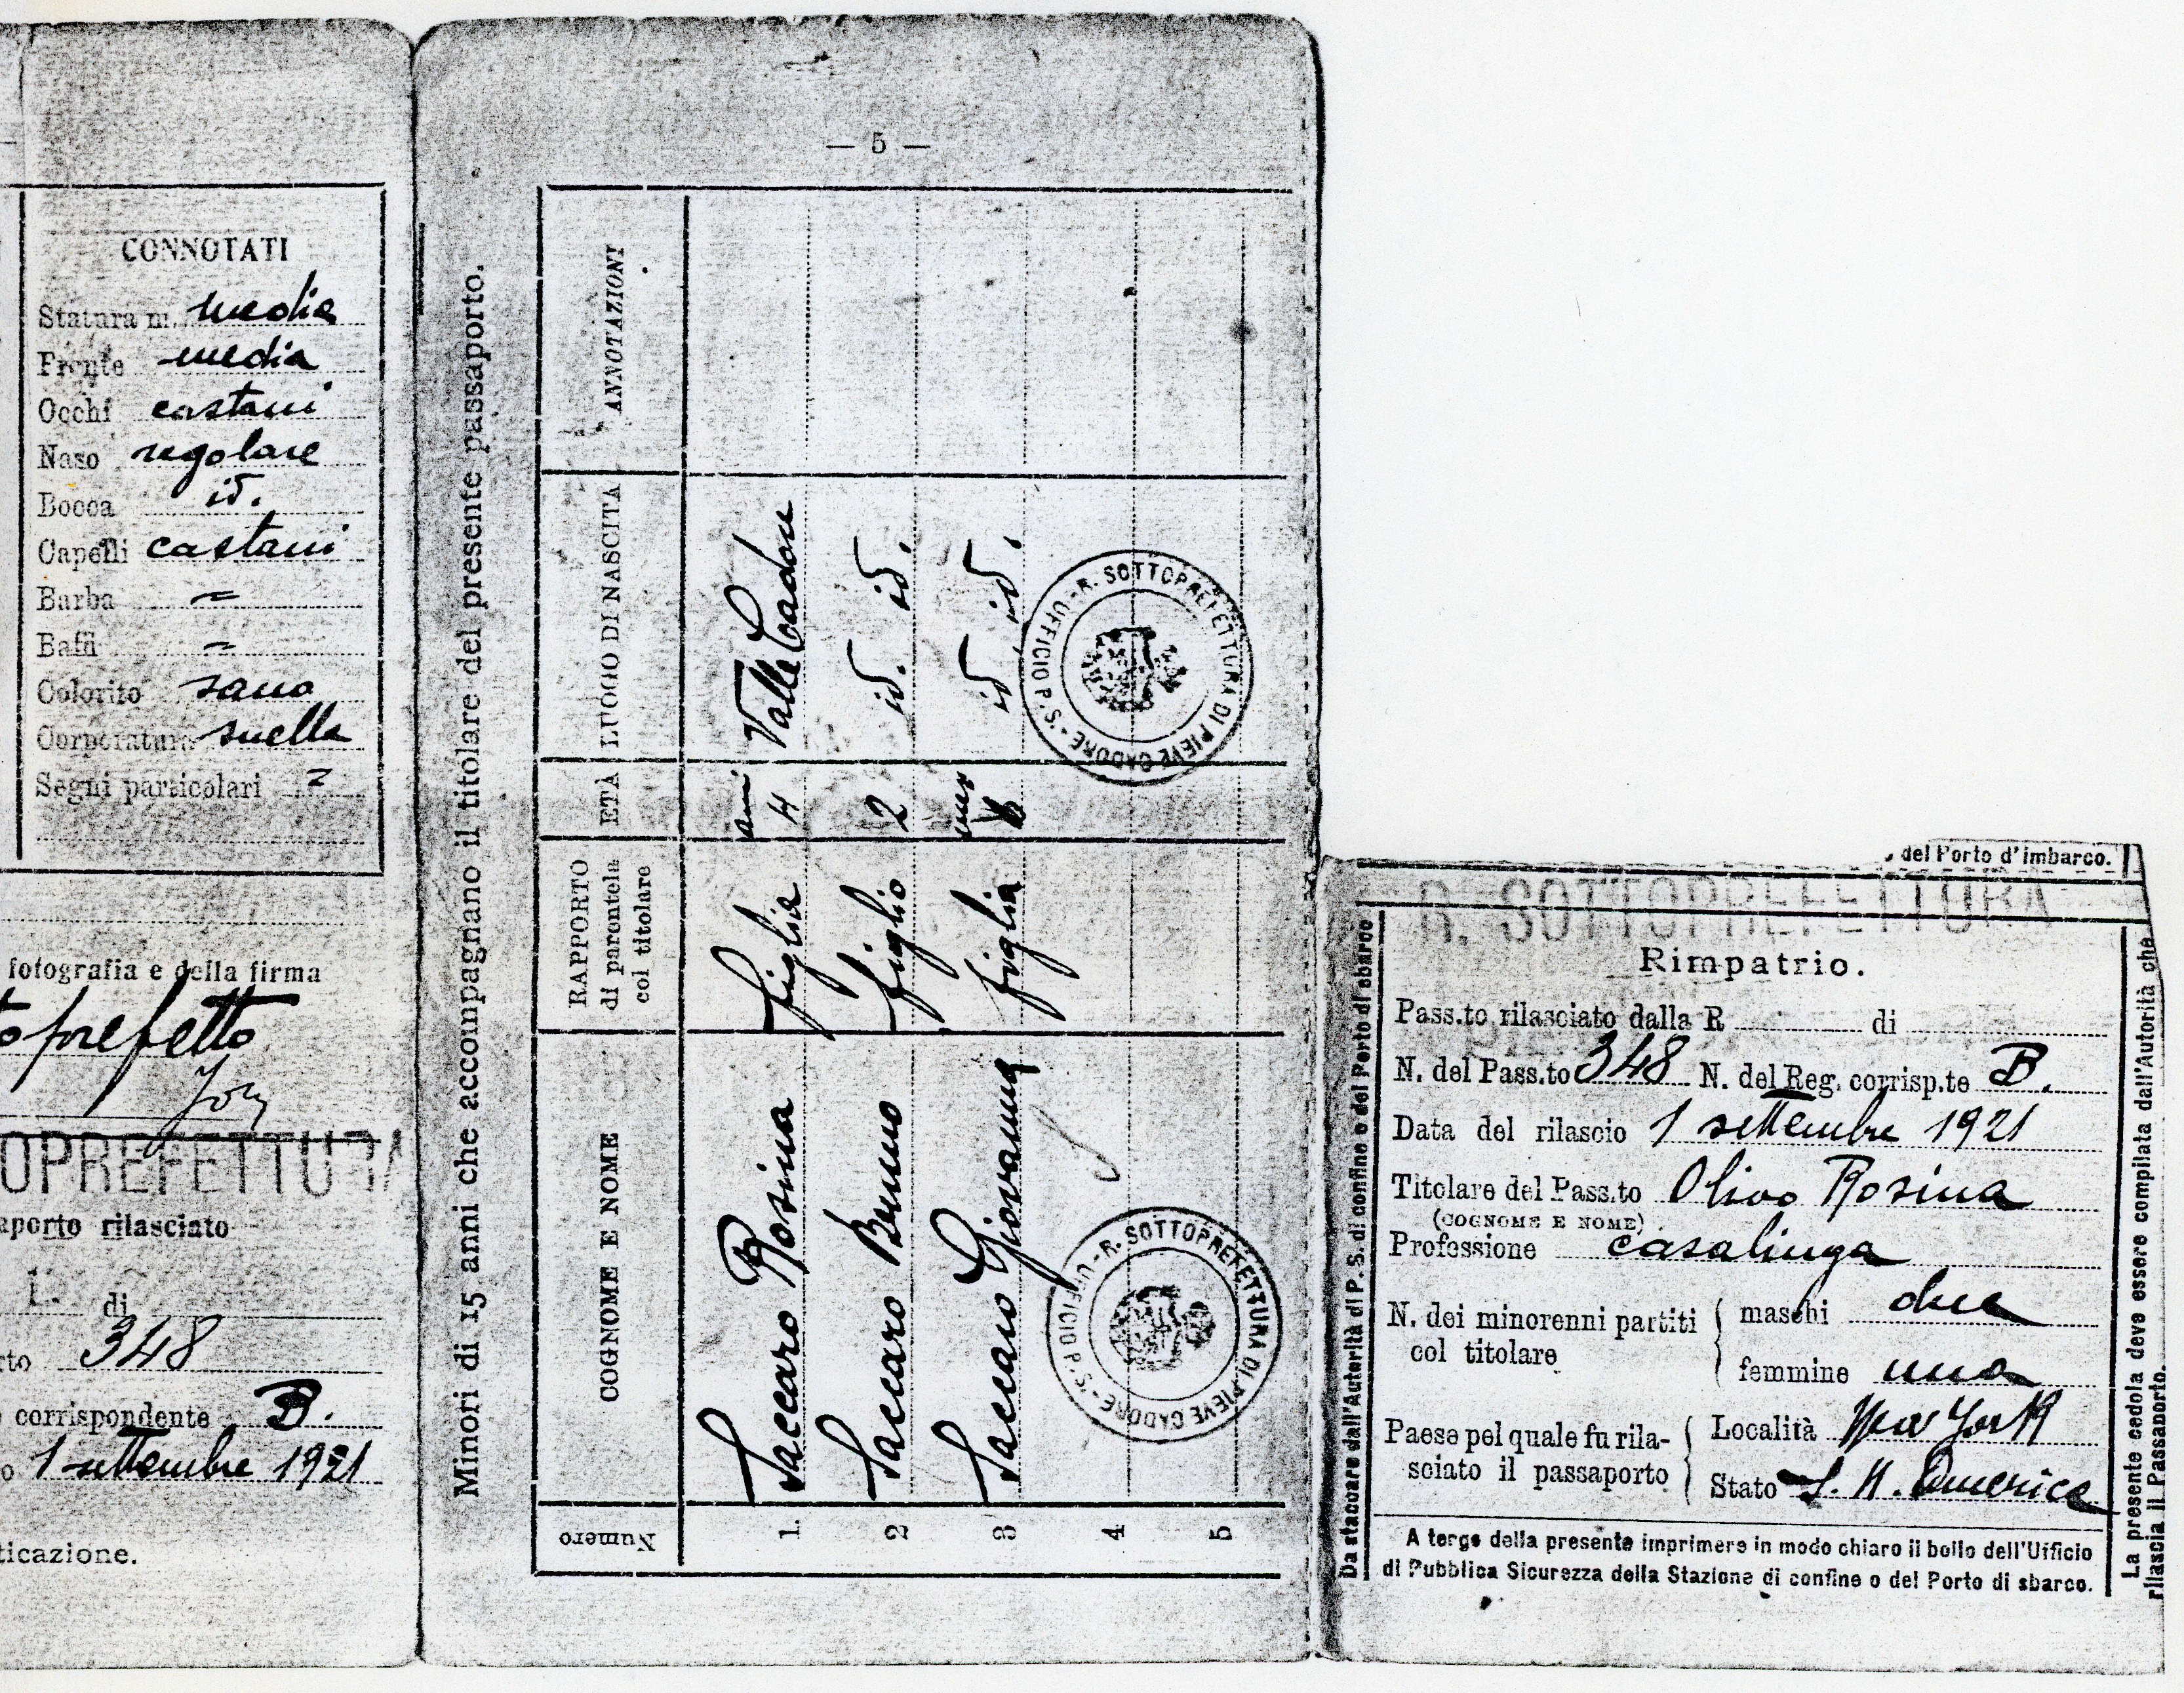 CONNOTATI
Statura m. media
Fronte media
Occhi castani
Naso regolare
Bocca id.
Capelli castani
Barba =
Baffi =
Colorito sano
Corporatura snella
Segni particolari =
fotografia e della firma
toprefetto
OPREFETTURA
aporto rilasciato
di
rto 348
corrispondente B.
o 1 settembre 1921
ticazione.
— 5 —
Minori di 15 anni che accompagnano il titolare del presente passaporto.
Numero COGNOME E NOME RAPPORTO di parentela col titolare ETÀ LUOGO DI NASCITA ANNOTAZIONI
1. Saccaro Rosina figlia anni 4 Valle Cadore
2 Saccaro Bruno figlio 2 id. id.
3 Saccaro Giovanna figlia mesi id id.
4
5
R. SOTTOPREFETTURA DI PIEVE CADORE - UFFICIO P. S. -
R. SOTTOPREFETTURA DI PIEVE CADORE - UFFICIO P. S. -
del Porto d'imbarco.
R. SOTTOPREFETTURA
Rimpatrio.
Pass.to rilasciato dalla R di
N. del Pass.to 348 N. del Reg. corrisp.te B.
Data del rilascio 1 settembre 1921
Titolare del Pass.to Olivo Rosina
(COGNOME E NOME)
Professione casalinga
N. dei minorenni partiti col titolare
maschi due
femmine una
Paese pel quale fu rilasciato il passaporto
Località New York
Stato S. U. America
A tergo della presente imprimere in modo chiaro il bollo dell'Ufficio
di Pubblica Sicurezza della Stazione di confine o del Porto di sbarco.
Da staccare dall'Autorità di P. S. di confine o del Porto di sbarco
La presente cedola deve essere compilata dall'Autorità che
rilascia il Passaporto.